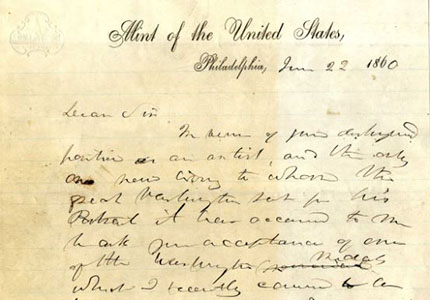 Mint of the United States,
Philadelphia, June 22 1860
Dear Sir
In view of your distinguished
position as an artist, and the only
one now living to whom the
great Washington sat for his
Portrait it has occurred to me
to ask your acceptance of one
of the Washington Medals
which I recently caused to be